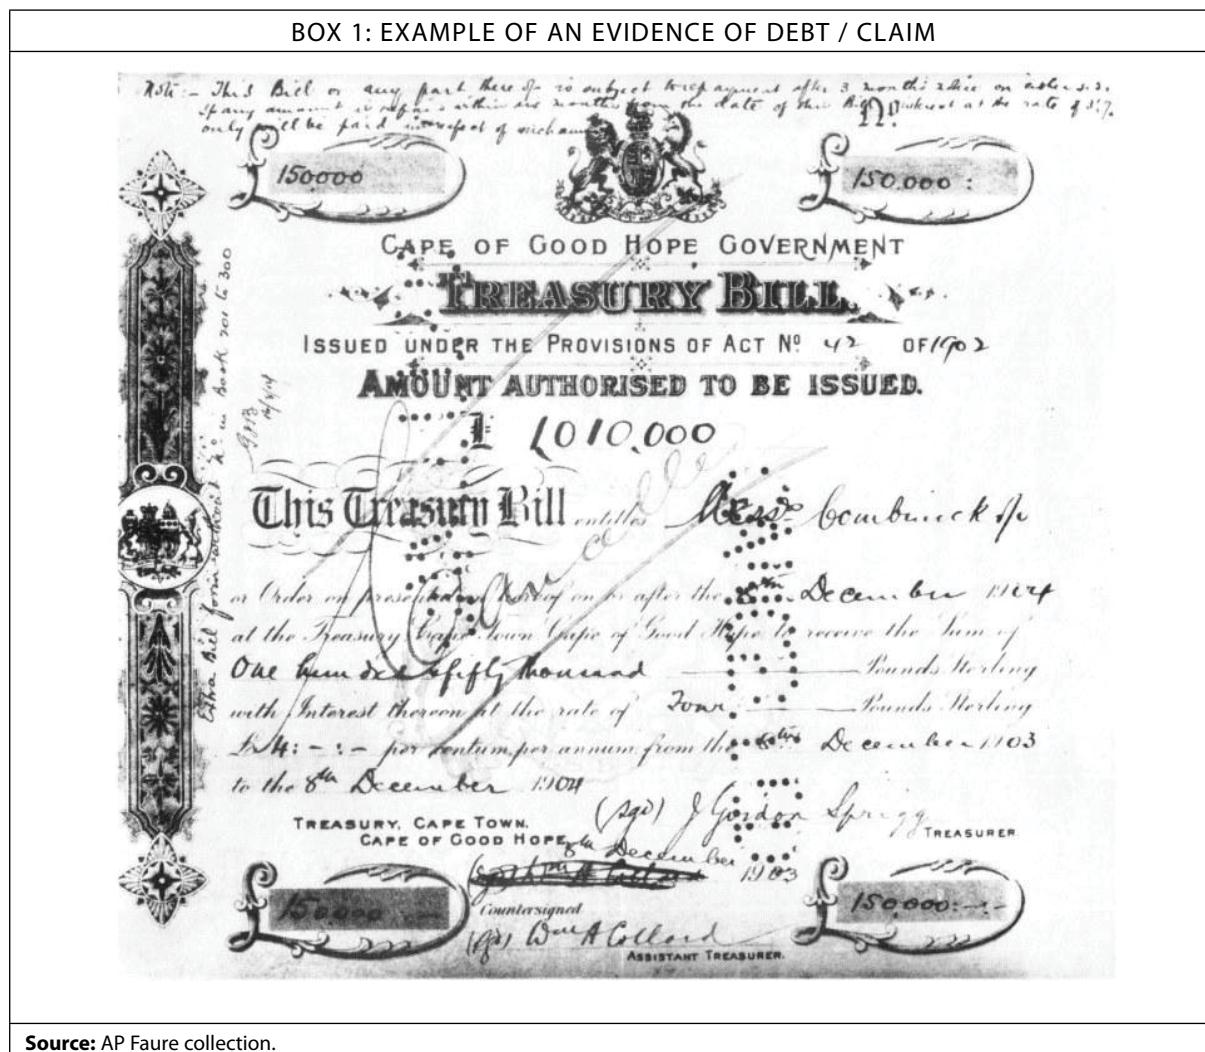 BOX 1: EXAMPLE OF AN EVIDENCE OF DEBT / CLAIM
Note:- This Bill or any part thereof is subject to repayment after 3 months notice on
If any amount is repaid within six months from the date of this Bill interest at the rate of 3½%
only will be paid in respect of such
£ 150000
£ 150.000 :
CAPE OF GOOD HOPE GOVERNMENT
TREASURY BILL.
ISSUED UNDER THE PROVISIONS OF ACT No 42 OF 1902
AMOUNT AUTHORISED TO BE ISSUED.
£ 1,010,000
This Treasury Bill entitles Messrs
or Order on presentation hereof on or after the 8th December 1904
at the Treasury Cape Town Cape of Good Hope to receive the Sum of
One hundred & fifty thousand Pounds Sterling
with Interest thereon at the rate of Four Pounds Sterling
£4: - : - per centum per annum from the 8th December 1903
to the 8th December 1904
(sgd) J Gordon Sprigg
TREASURER.
TREASURY, CAPE TOWN.
CAPE OF GOOD HOPE, 8th December 1903
Countersigned
(sgd) Wm A Collard
ASSISTANT TREASURER.
£ 150000
£ 150.000: - : -
Extra Bill form without No in book 201 to 300
Cancelled
Source: AP Faure collection.